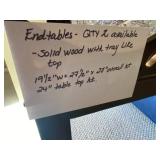 Endtables - QTY 2 available
- Solid wood with tray like
top
19½"W x 27½" x 28" overall ht
24" table top ht.